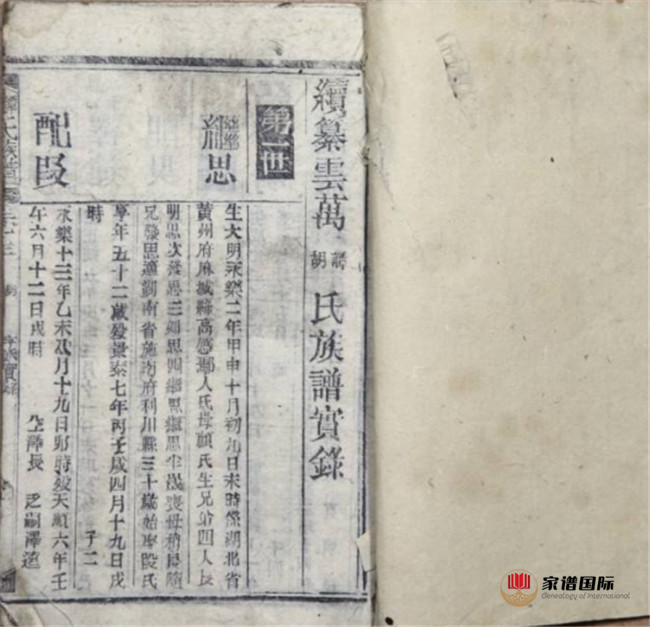 續纂雲萬 謝胡 氏族譜實錄
第一世
繼思
生大明永樂二年甲申十月初九日未時係湖北省
黃州府麻城縣高感鄉人氏母顧氏生兄弟四人長
明思次發思三繼思四繼思少喪母
兄發思遷湖南省施南府利川縣三十歲始娶段氏
享年五十二歲歿景泰七年丙子歲四月十九日戌
時 子二
配段
永樂十三年乙未歲月十九日卯時歿天順六年壬
午六月十二日戌時 生澤長 嗣澤遠
氏族譜
家谱国际
Genealogy of International